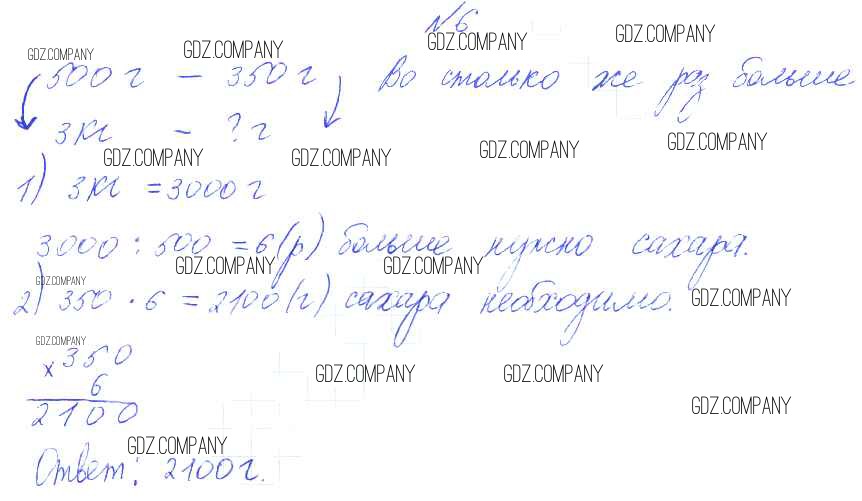 №6
GDZ.COMPANY GDZ.COMPANY GDZ.COMPANY GDZ.COMPANY
500г – 350г Во столько же раз больше
3кг – ? г
GDZ.COMPANY GDZ.COMPANY GDZ.COMPANY GDZ.COMPANY
1) 3кг = 3000г
3000 : 500 = 6(р) больше нужно сахара.
GDZ.COMPANY GDZ.COMPANY GDZ.COMPANY
2) 350 · 6 = 2100(г) сахара необходимо.
GDZ.COMPANY
GDZ.COMPANY
× 350
GDZ.COMPANY GDZ.COMPANY
6
2100
GDZ.COMPANY
GDZ.COMPANY
Ответ: 2100г.